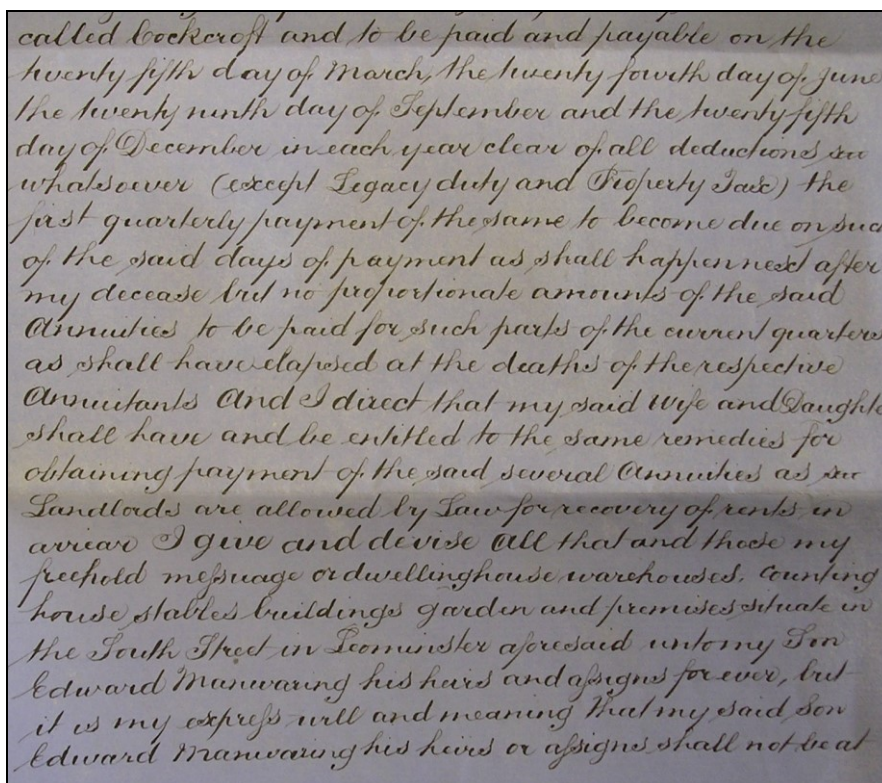 called Cockcroft and to be paid and payable on the
twenty fifth day of March, the twenty fourth day of June
the twenty ninth day of September and the twenty fifth
day of December in each year clear of all deductions
whatsoever (except Legacy duty and Property Tax) the
first quarterly payment of the same to become due on such
of the said days of payment as shall happen next after
my decease but no proportionate amounts of the said
Annuities to be paid for such parts of the current quarters
as shall have elapsed at the deaths of the respective
Annuitants And I direct that my said Wife and Daughte
shall have and be entitled to the same remedies for
obtaining payment of the said several Annuities as
Landlords are allowed by Law for recovery of rents in
arrear I give and devise all that and those my
freehold meſsuage or dwellinghouse warehouses, counting
house stables buildings garden and premises situate in
the South Street in Leominster aforesaid unto my Son
Edward Manwaring his heirs and aſsigns for ever, but
it is my expreſs will and meaning that my said Son
Edward Manwaring his heirs or aſsigns shall not be at